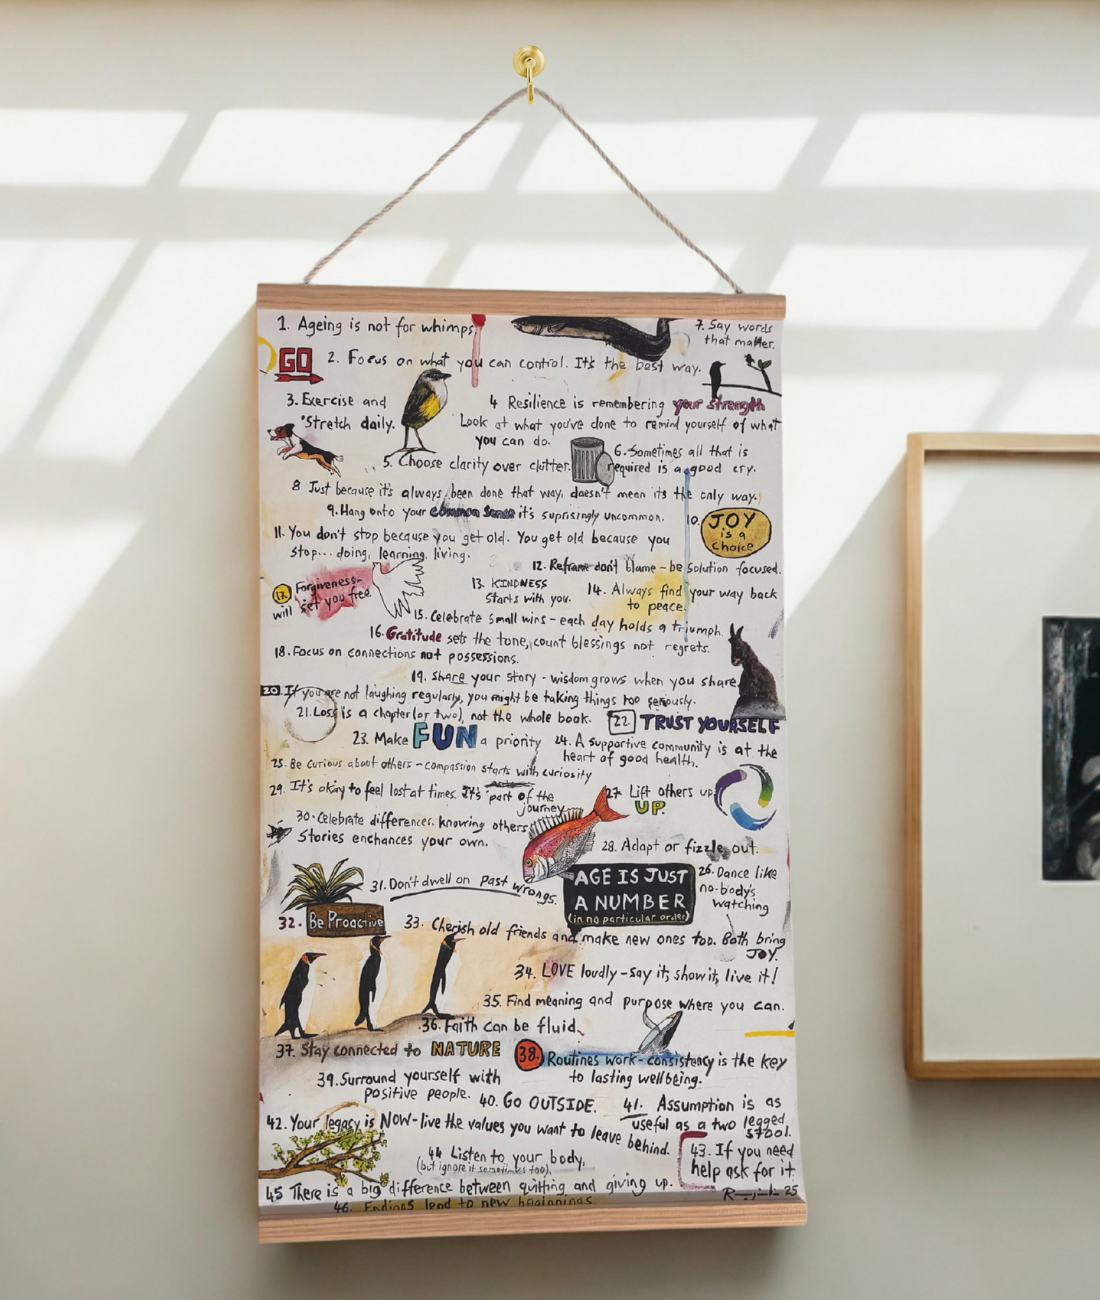 1. Ageing is not for whimps.
7. Say words
that matter.
GO
2. Focus on what you can control. It's the best way.
3. Exercise and
Stretch daily.
4 Resilience is remembering your strength
Look at what you've done to remind yourself of what
you can do.
5. Choose clarity over clutter.
6. Sometimes all that is
required is a good cry.
8 Just because it's always been done that way, doesn't mean its the only way.
9. Hang onto your common sense it's suprisingly uncommon.
10. JOY
is a
choice
11. You don't stop because you get old. You get old because you
stop... doing, learning, living.
12. Reframe don't blame - be solution focused.
17. Forgiveness-
will set you free.
13. KINDNESS
Starts with you.
14. Always find your way back
to peace.
15. Celebrate small wins - each day holds a triumph.
16. Gratitude sets the tone, count blessings not regrets.
18. Focus on connections not possessions.
19. Share your story - wisdom grows when you share.
20. If you are not laughing regularly, you might be taking things too seriously.
21. Loss is a chapter (or two), not the whole book.
22 TRUST YOURSELF
23. Make FUN a priority
24. A supportive community is at the
heart of good health.
25. Be curious about others - compassion starts with curiosity
29. It's okay to feel lost at times. It's part of the
journey
27. Lift others up
UP.
30. Celebrate differences. knowing others
Stories enchances your own.
28. Adapt or fizzle out.
31. Don't dwell on past wrongs.
AGE IS JUST
A NUMBER
(in no particular order)
26. Dance like
no-body's
watching
32. Be Proactive
33. Cherish old friends and make new ones too. Both bring
JOY.
34. LOVE loudly - say it, show it, live it!
35. Find meaning and purpose where you can.
36. Faith can be fluid.
37. Stay connected to NATURE
38. Routines work - consistency is the key
to lasting wellbeing.
39. Surround yourself with
positive people.
40. GO OUTSIDE.
41. Assumption is as
useful as a two legged
stool.
42. Your legacy is NOW - live the values you want to leave behind.
43. If you need
help ask for it
44 Listen to your body,
(but ignore it sometimes too).
45 There is a big difference between quitting and giving up.
25
46. Endings lead to new beginnings